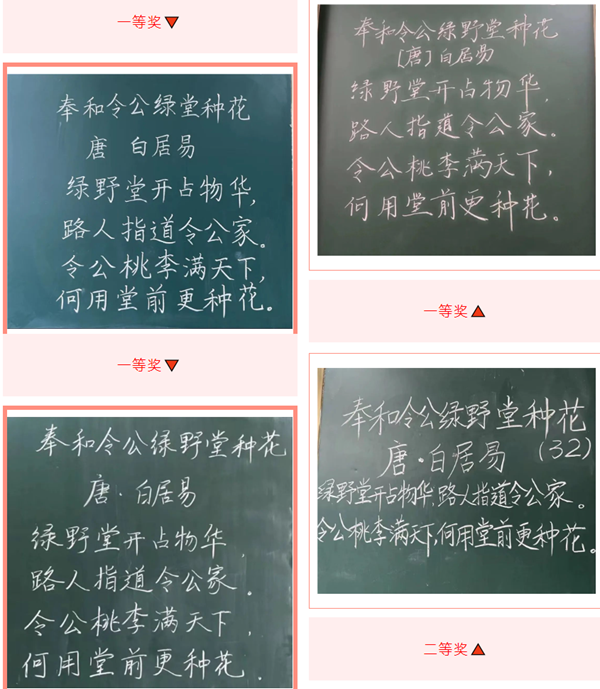 一等奖▼
奉和令公绿堂种花
唐 白居易
绿野堂开占物华,
路人指道令公家。
令公桃李满天下,
何用堂前更种花。
一等奖▼
奉和令公绿野堂种花
唐·白居易
绿野堂开占物华,
路人指道令公家。
令公桃李满天下,
何用堂前更种花.
奉和令公绿野堂种花
[唐]白居易
绿野堂开占物华,
路人指道令公家。
令公桃李满天下,
何用堂前更种花。
一等奖▲
奉和令公绿野堂种花
唐·白居易 (32)
绿野堂开占物华,路人指道令公家。
令公桃李满天下,何用堂前更种花。
二等奖▲